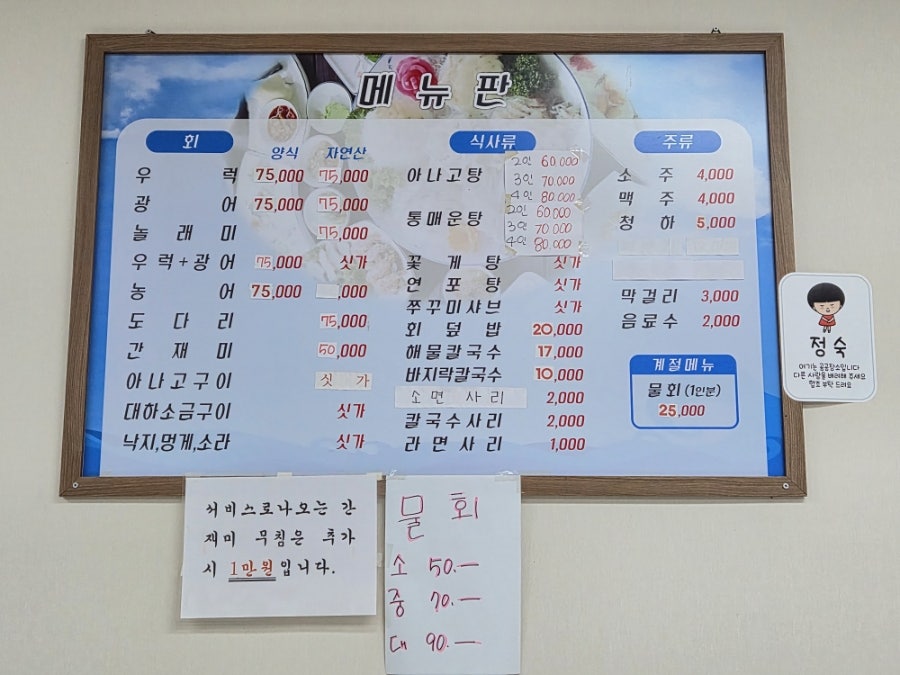 메뉴판
회
양식 자연산
우럭 75,000 75,000
광어 75,000 75,000
놀래미 75,000
우럭+광어 75,000 싯가
농어 75,000 ,000
도다리 75,000
간재미 50,000
아나고구이 싯가
대하소금구이 싯가
낙지,멍게,소라 싯가
식사류
아나고탕 2인 60.000
3인 70.000
4인 80.000
통매운탕 2인 60.000
3인 70.000
4인 80.000
꽃게탕 싯가
연포탕 싯가
쭈꾸미샤브 싯가
회덮밥 20,000
해물칼국수 17,000
바지락칼국수 10,000
소면사리 2,000
칼국수사리 2,000
라면사리 1,000
주류
소주 4,000
맥주 4,000
청하 5,000
막걸리 3,000
음료수 2,000
계절메뉴
물회(1인분)
25,000
정숙
여기는 공공장소입니다
다른 사람을 배려해 주세요
협조 부탁 드려요
서비스로나오는 간
재미 무침은 추가
시 1만원입니다.
물회
소 50.—
중 70.—
대 90.—